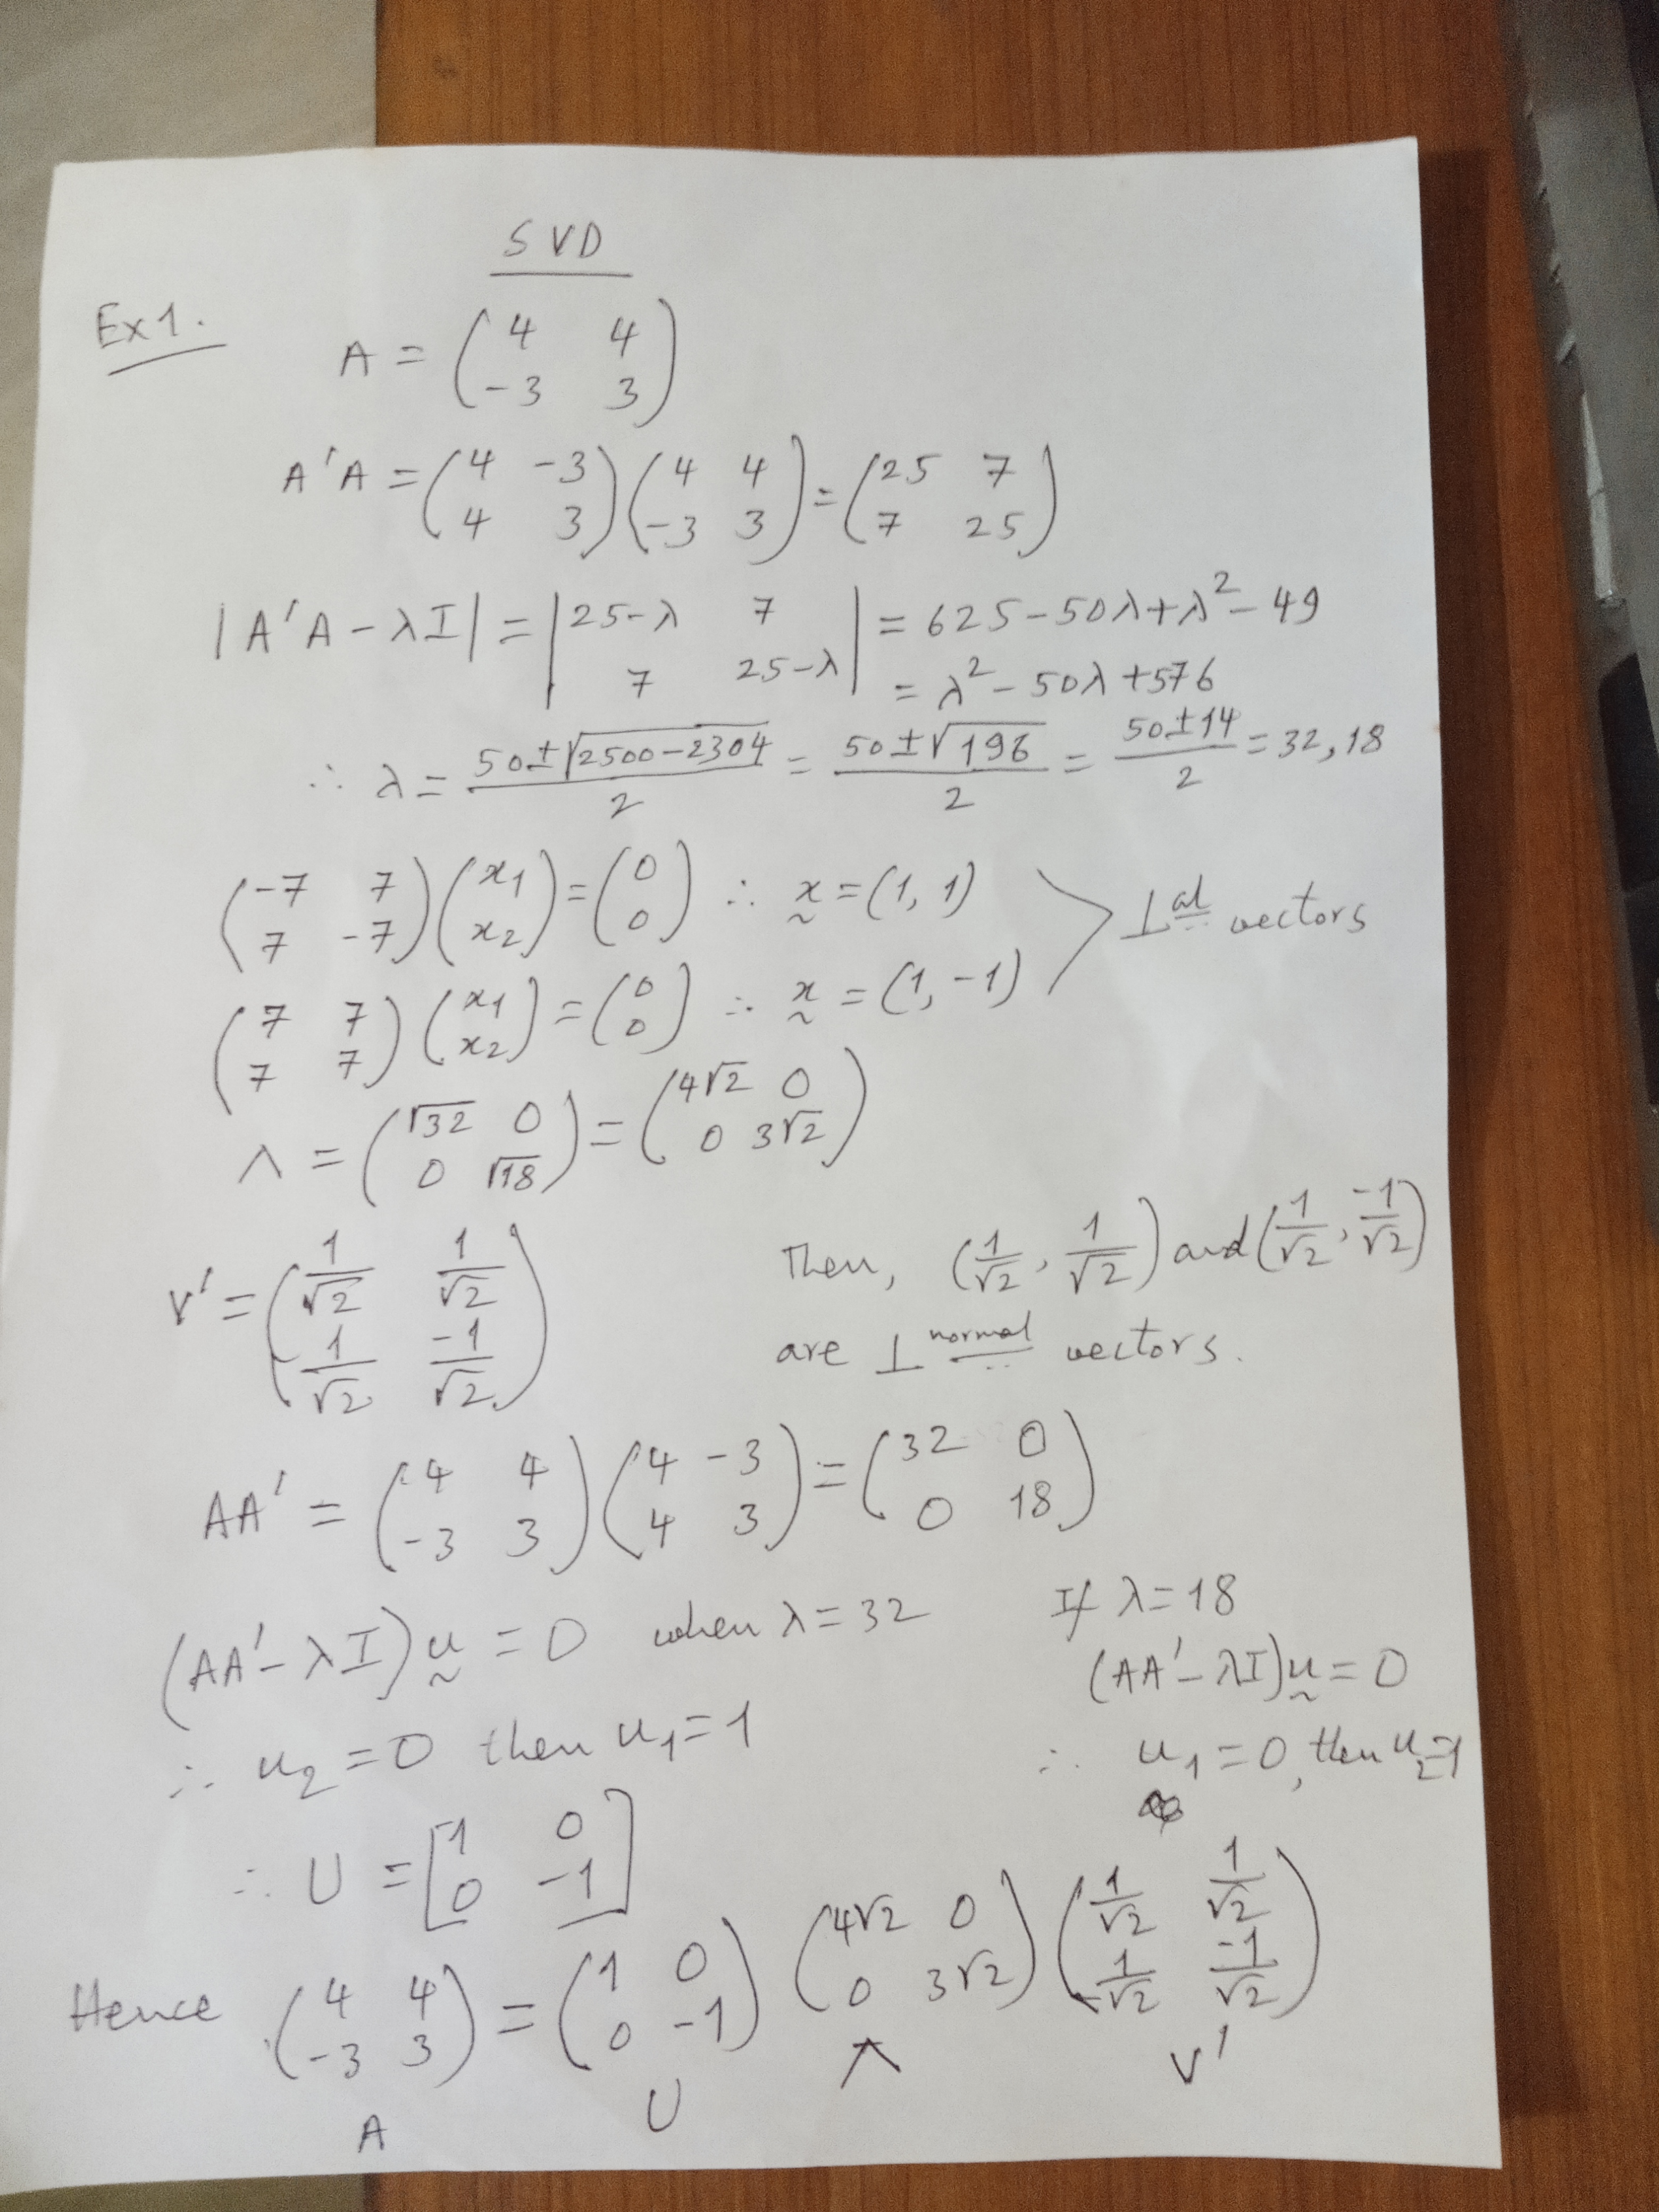 SVD
Ex1.
A = (4 4; -3 3)
A'A = (4 -3; 4 3)(4 4; -3 3) = (25 7; 7 25)
|A'A - λI| = |25-λ 7; 7 25-λ| = 625 - 50λ + λ² - 49
= λ² - 50λ + 576
∴ λ = (50 ± √(2500-2304))/2 = (50 ± √196)/2 = (50 ± 14)/2 = 32, 18
(-7 7; 7 -7)(x₁; x₂) = (0; 0) ∴ x = (1, 1)
⊥al vectors
(7 7; 7 7)(x₁; x₂) = (0; 0) ∴ x = (1, -1)
Λ = (√32 0; 0 √18) = (4√2 0; 0 3√2)
V' = (1/√2 1/√2; 1/√2 -1/√2)
Then, (1/√2, 1/√2) and (1/√2, -1/√2)
are ⊥normal vectors.
AA' = (4 4; -3 3)(4 -3; 4 3) = (32 0; 0 18)
(AA' - λI)u = 0 when λ = 32
∴ u₂ = 0 then u₁ = 1
If λ = 18
(AA' - λI)u = 0
∴ u₁ = 0, then u₂ = 1
∴ U = [1 0; 0 -1]
Hence (4 4; -3 3) = (1 0; 0 -1) (4√2 0; 0 3√2) (1/√2 1/√2; 1/√2 -1/√2)
A U Λ V'